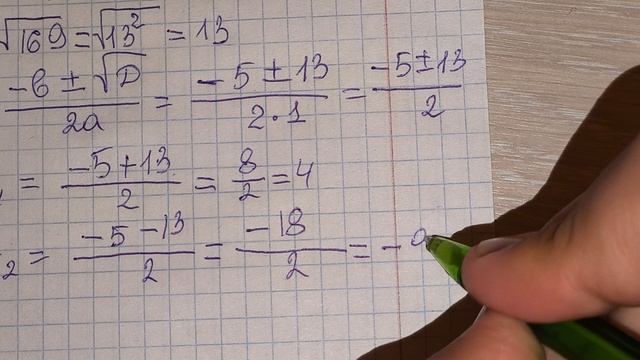 √169 = √13² = 13
-b ± √D / 2a = -5 ± 13 / 2·1 = -5 ± 13 / 2
= -5 + 13 / 2 = 8 / 2 = 4
2 = -5 - 13 / 2 = -18 / 2 = -9